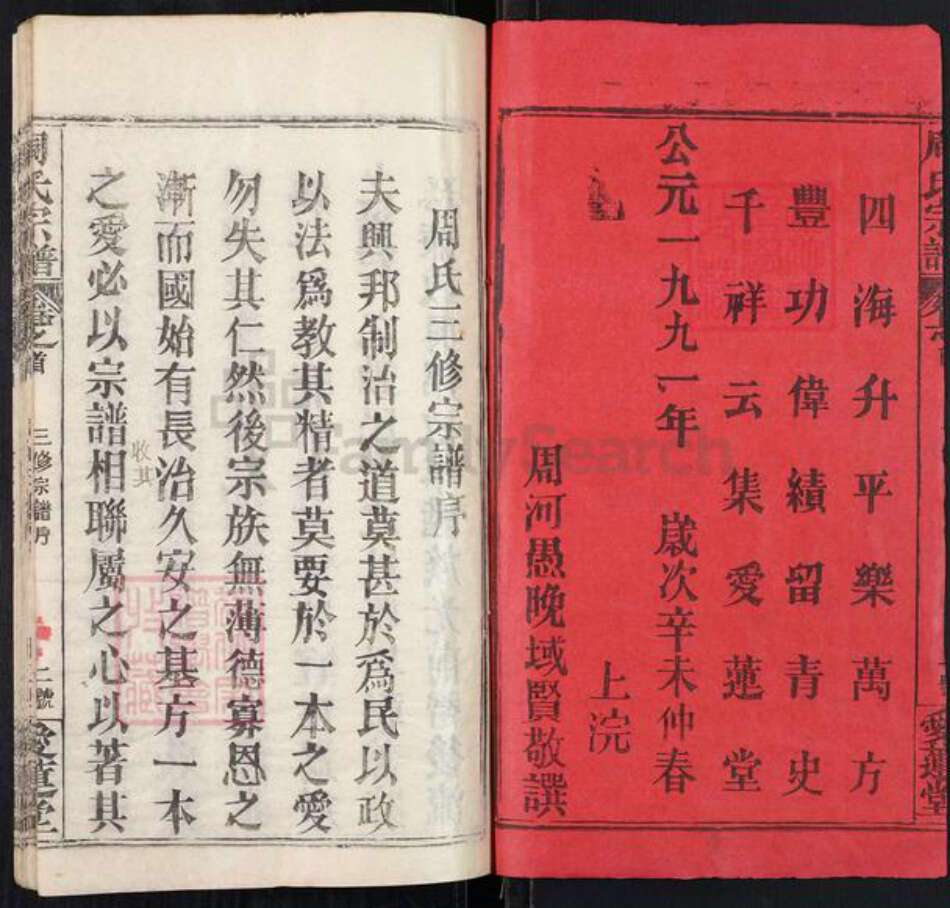 四海升平樂萬方
豐功偉績留青史
千祥云集愛蓮堂
公元一九九一年 歲次辛未仲春
上浣
周河愚晚域賢敬譔
愛蓮堂
周氏三修宗譜序
夫興邦制治之道莫甚於爲民以政
以法爲教其精者莫要於一本之愛
勿失其仁然後宗族無薄德寡恩之
漸而國始有長治久安之基方一本
收其
之愛必以宗譜相聯屬之心以著其
周氏宗譜 卷之首 三修宗譜序 二號 愛蓮堂
FamilySearch